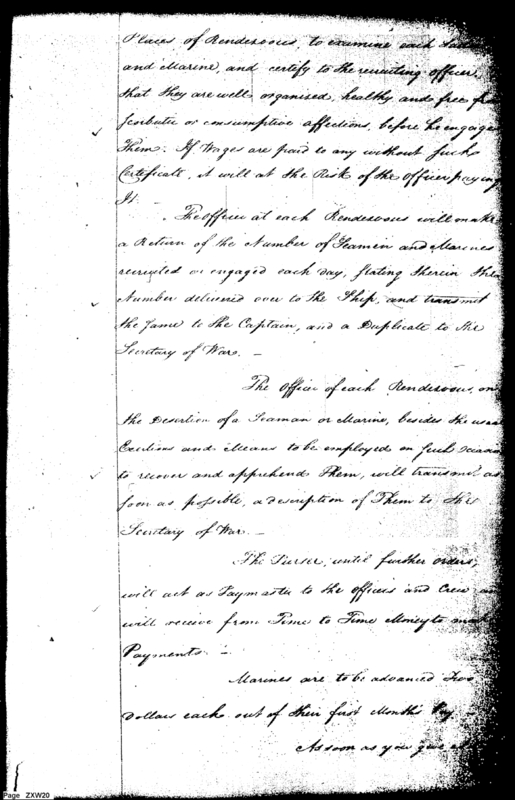 Places of Rendezvous, to examine each
and Marine, and certify to the recruiting officer,
that they are well organised, healthy and free
scorbutic or consumptive affections, before he engages
Them. If Wages are paid to any without such
Certificate, it will at the Risk of the Officer paying
It. —
The Officer at each Rendezvous will make
a Return of the Number of Seamen and Marines
recruited or engaged each day, stating therein the
Number delivered over to the Ship, and transmit
the same to the Captain, and a Duplicate to the
Secretary of War. —
The Officer of each Rendezvous, on
the Desertion of a Seaman or Marine, besides the usual
Exertions and Means to be employed on such
to recover and apprehend Them, will transmit as
soon as possible, a description of Them to the
Secretary of War —
The Purser, until further orders,
will act as Paymaster to the officers and Crew
will receive from Time to Time Money to
Payments. —
Marines are to be advanced Two
Dollars each out of their first Month's Pay —
As soon as you
Page ZXW20